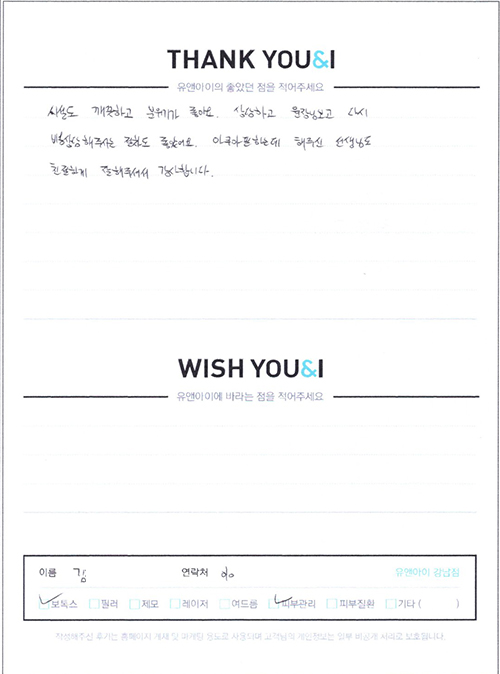 THANK YOU&I
유앤아이의 좋았던 점을 적어주세요
시설도 깨끗하고 분위기가 좋아요. 상담하고 원장님보고 다시
해주시는 점도 좋았어요. 아쿠아필하는데 해주신 선생님도
친절하게 잘해주셔서 감사합니다.
WISH YOU&I
유앤아이에 바라는 점을 적어주세요
이름 김 연락처 010 유앤아이 강남점
보톡스 필러 제모 레이저 여드름 피부관리 피부질환 기타 ( )
작성해주신 후기는 홈페이지 게재 및 마케팅 용도로 사용되며 고객님의 개인정보는 외부 비공개 자료로 보호됩니다.